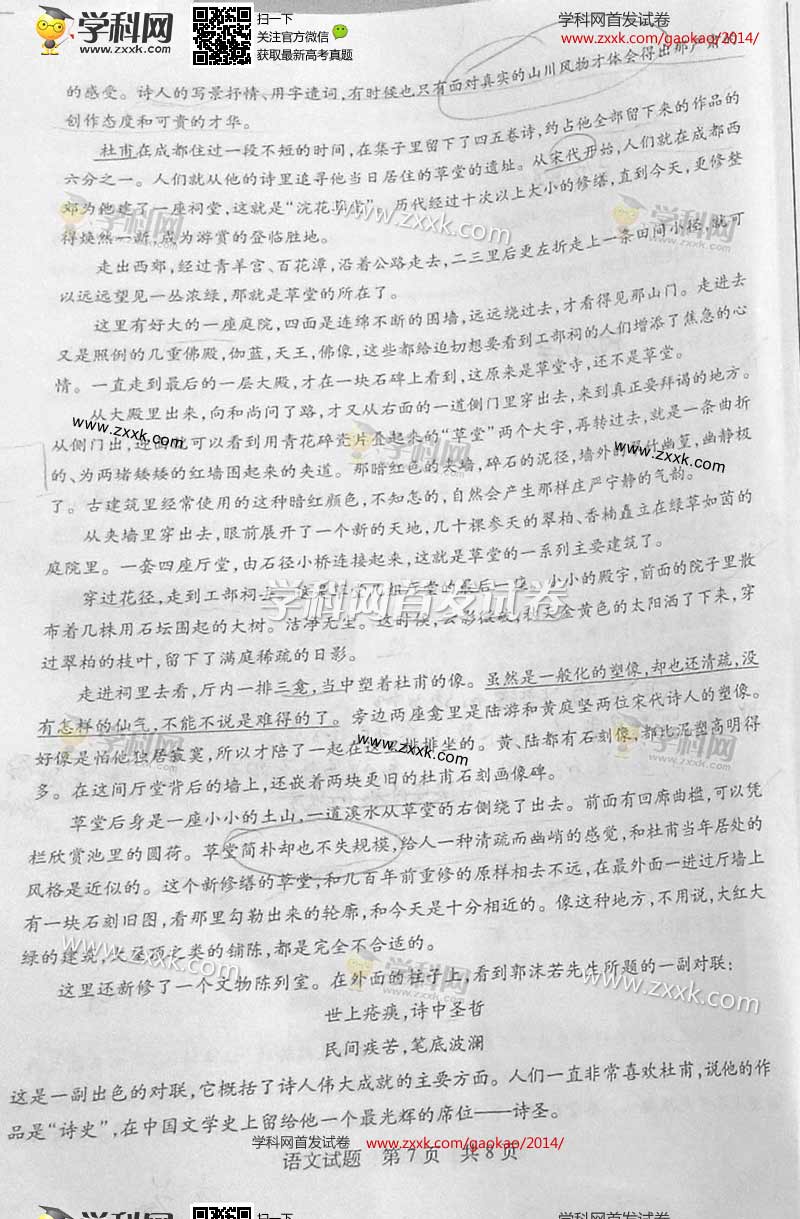 学科网
www.zxxk.com
扫一下
关注官方微信
获取最新高考真题
学科网首发试卷
www.zxxk.com/gaokao/2014/
的感受。诗人的写景抒情、用字遣词,有时候也只有面对真实的山川风物才体会得出那严肃的
创作态度和可贵的才华。
杜甫在成都住过一段不短的时间,在集子里留下了四五卷诗,约占他全部留下来的作品的
六分之一。人们就从他的诗里追寻他当日居住的草堂的遗址。从宋代开始,人们就在成都西
郊为他建了一座祠堂,这就是“浣花草堂”。历代经过十次以上大小的修缮,直到今天,更修整
得焕然一新,成为游赏的登临胜地。
走出西郊,经过青羊宫、百花潭,沿着公路走去,二三里后更左折走上一条田间小径,就可
以远远望见一丛浓绿,那就是草堂的所在了。
这里有好大的一座庭院,四面是连绵不断的围墙,远远绕过去,才看得见那山门。走进去
又是照例的几重佛殿,伽蓝,天王,佛像,这些都给迫切想要看到工部祠的人们增添了焦急的心
情。一直走到最后的一层大殿,才在一块石碑上看到,这原来是草堂寺,还不是草堂。
从大殿里出来,向和尚问了路,才又从右面的一道侧门里穿出去,来到真正要拜谒的地方。
从侧门出,迎面就可以看到用青花碎瓷片叠起来的“草堂”两个大字,再转过去,就是一条曲折
的、为两堵矮矮的红墙围起来的夹道。那暗红色的夹墙,碎石的泥径,墙外的翠竹幽篁,幽静极
了。古建筑里经常使用的这种暗红颜色,不知怎的,自然会产生那样庄严宁静的气韵。
从夹墙里穿出去,眼前展开了一个新的天地,几十棵参天的翠柏、香楠矗立在绿草如茵的
庭院里。一套四座厅堂,由石径小桥连接起来,这就是草堂的一系列主要建筑了。
穿过花径,走到工部祠去。这里是草堂的最后一座。小小的殿宇,前面的院子里散
布着几株用石坛围起的大树。洁净无尘。这时候,云影微破,金黄色的太阳洒了下来,穿
过翠柏的枝叶,留下了满庭稀疏的日影。
走进祠里去看,厅内一排三龛,当中塑着杜甫的像。虽然是一般化的塑像,却也还清疏,没
有怎样的仙气,不能不说是难得的了。旁边两座龛里是陆游和黄庭坚两位宋代诗人的塑像。
好像是怕他独居寂寞,所以才陪了一起在这里排排坐的。黄、陆都有石刻像,都比泥塑高明得
多。在这间厅堂背后的墙上,还嵌着两块更旧的杜甫石刻画像碑。
草堂后身是一座小小的土山,一道溪水从草堂的右侧绕了出去。前面有回廊曲槛,可以凭
栏欣赏池里的圆荷。草堂简朴却也不失规模,给人一种清疏而幽峭的感觉,和杜甫当年居处的
风格是近似的。这个新修缮的草堂,和几百年前重修的原样相去不远,在最外面一进过厅墙上
有一块石刻旧图,看那里勾勒出来的轮廓,和今天是十分相近的。像这种地方,不用说,大红大
绿的建筑,大屋顶之类的铺陈,都是完全不合适的。
这里还新修了一个文物陈列室。在外面的柱子上,看到郭沫若先生所题的一副对联:
世上疮痍,诗中圣哲
民间疾苦,笔底波澜
这是一副出色的对联,它概括了诗人伟大成就的主要方面。人们一直非常喜欢杜甫,说他的作
品是“诗史”,在中国文学史上留给他一个最光辉的席位——诗圣。
学科网首发试卷
www.zxxk.com/gaokao/2014/
语文试题 第7页 共8页
学科网
扫一下
学科网首发试卷